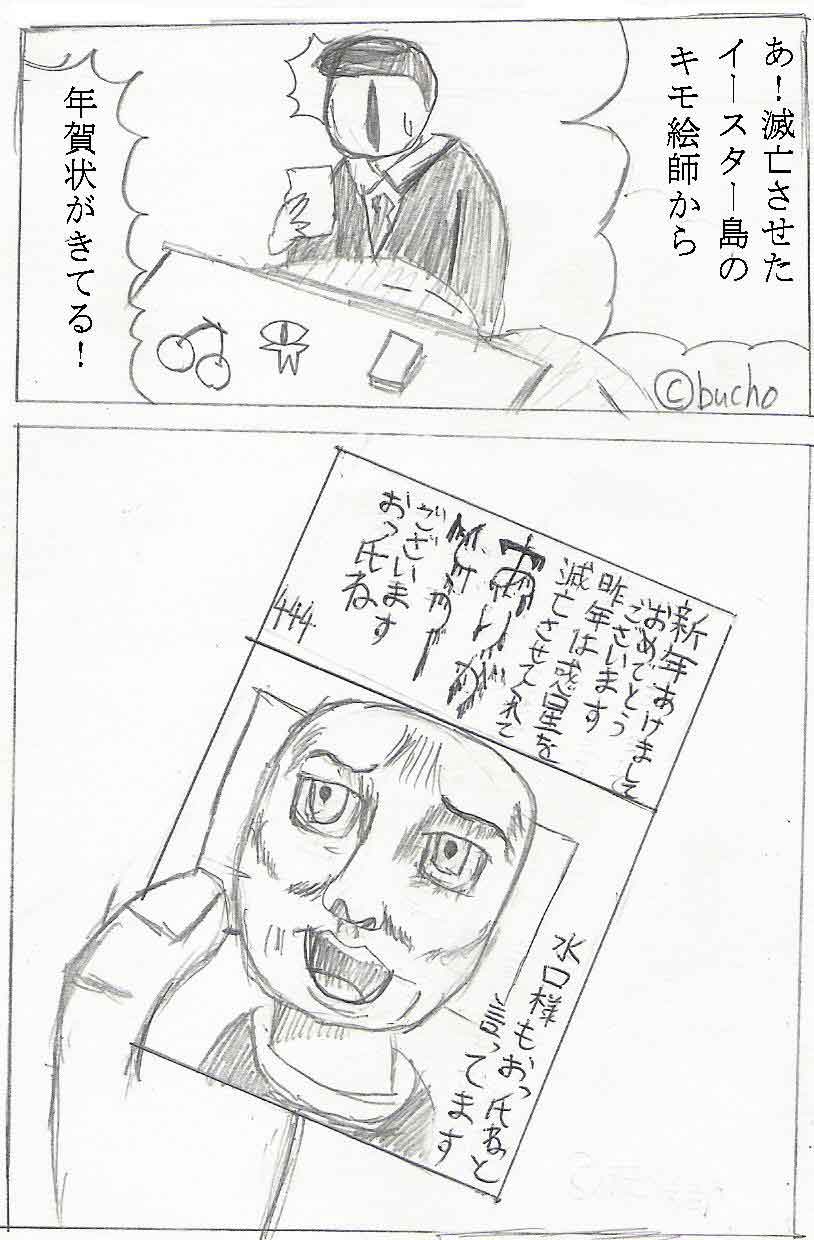 あ！滅亡させた
イースター島の
キモ絵師から
年賀状がきてる！
©bucho
新年あけまして
おめでとう
ございます
昨年は惑星を
滅亡させてくれて
ありが
ございます
おっ氏ね
444
水口様もおっ氏ねと
言ってます